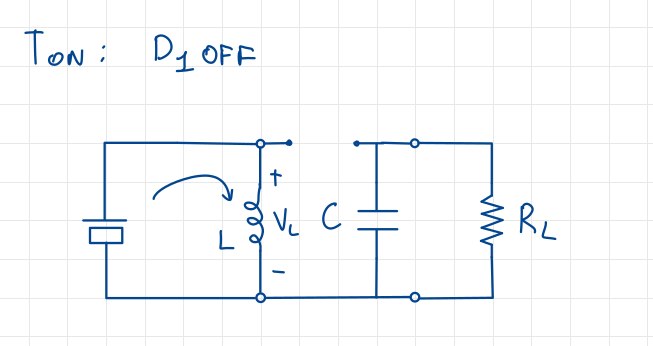 TON: D1 OFF
+
L VL C RL
-